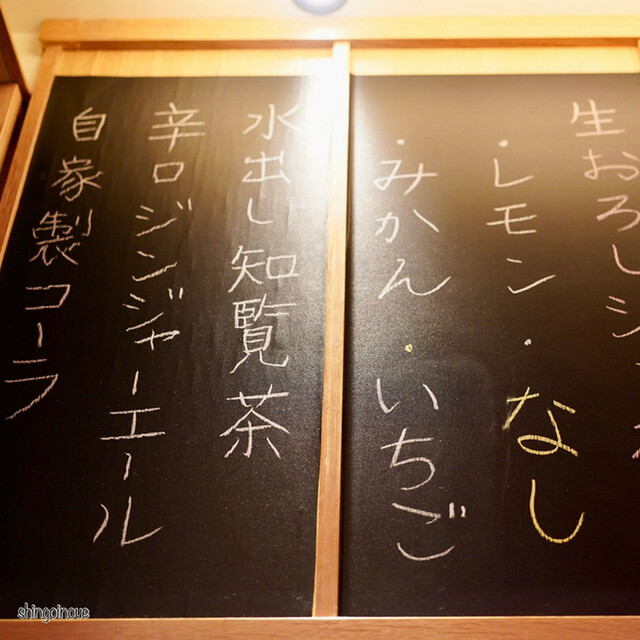 生おろしジ
・レモン・なし
・みかん・いちご
水出し知覧茶
辛口ジンジャーエール
自家製コーラ
shingoinoue